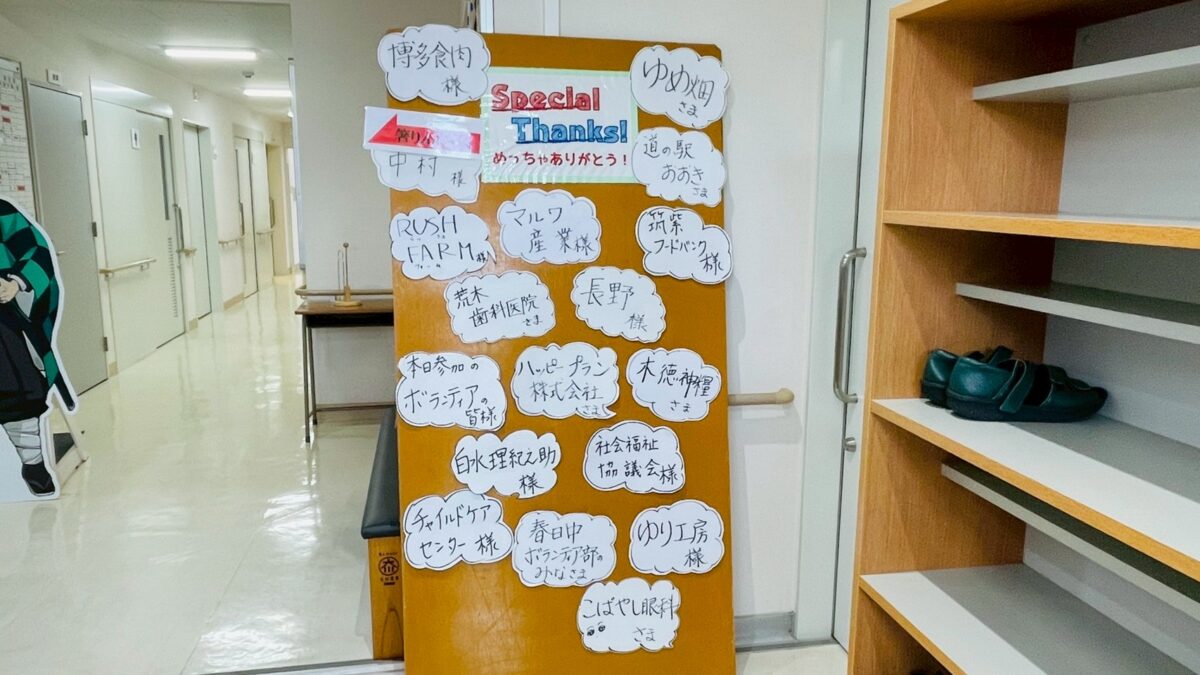 博多食肉
様
Special
Thanks!
めっちゃありがとう!
ゆめ畑
さま
中村 様
道の駅
おおき
さま
RUSH
FARM 様
ファーム
マルワ
産業様
筑紫
フードバンク
様
荒木
歯科医院
さま
長野
様
本日参加の
ボランティアの
皆様
ハッピープラン
株式会社
さま
木徳神糧
さま
白水理紀之助
様
社会福祉
協議会様
チャイルドケア
センター 様
春日中
ボランティア部の
みなさま
ゆり工房
様
こばやし眼科
さま